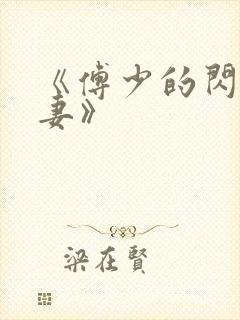 《傅少的閃
妻》
梁在賢